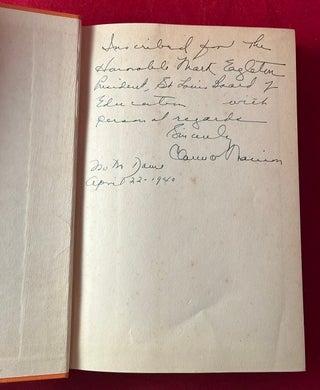 Inscribed for the
Honorable Mark Eagleton
President, St Louis Board of
Education with
personal regards
Sincerely
Clarence Manion
April 22-1940